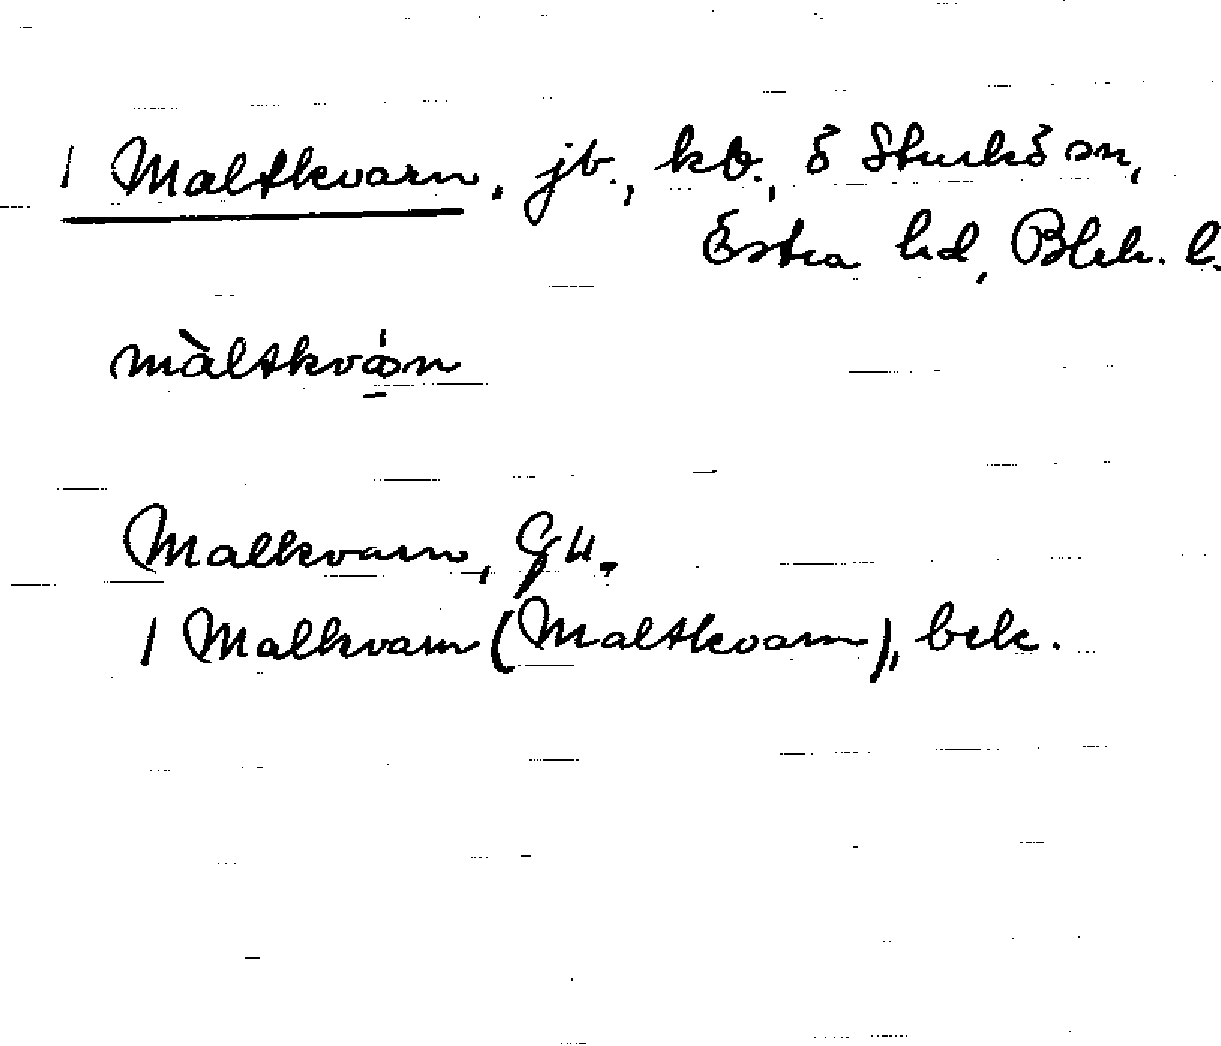 1 Maltkvarn, jb., kb., ö Sturkö sn,
Östra hd, Blek. l.
màltkvá̱n
Malkvarn, GU.
1 Malkvarn (Maltkvarn), bek.